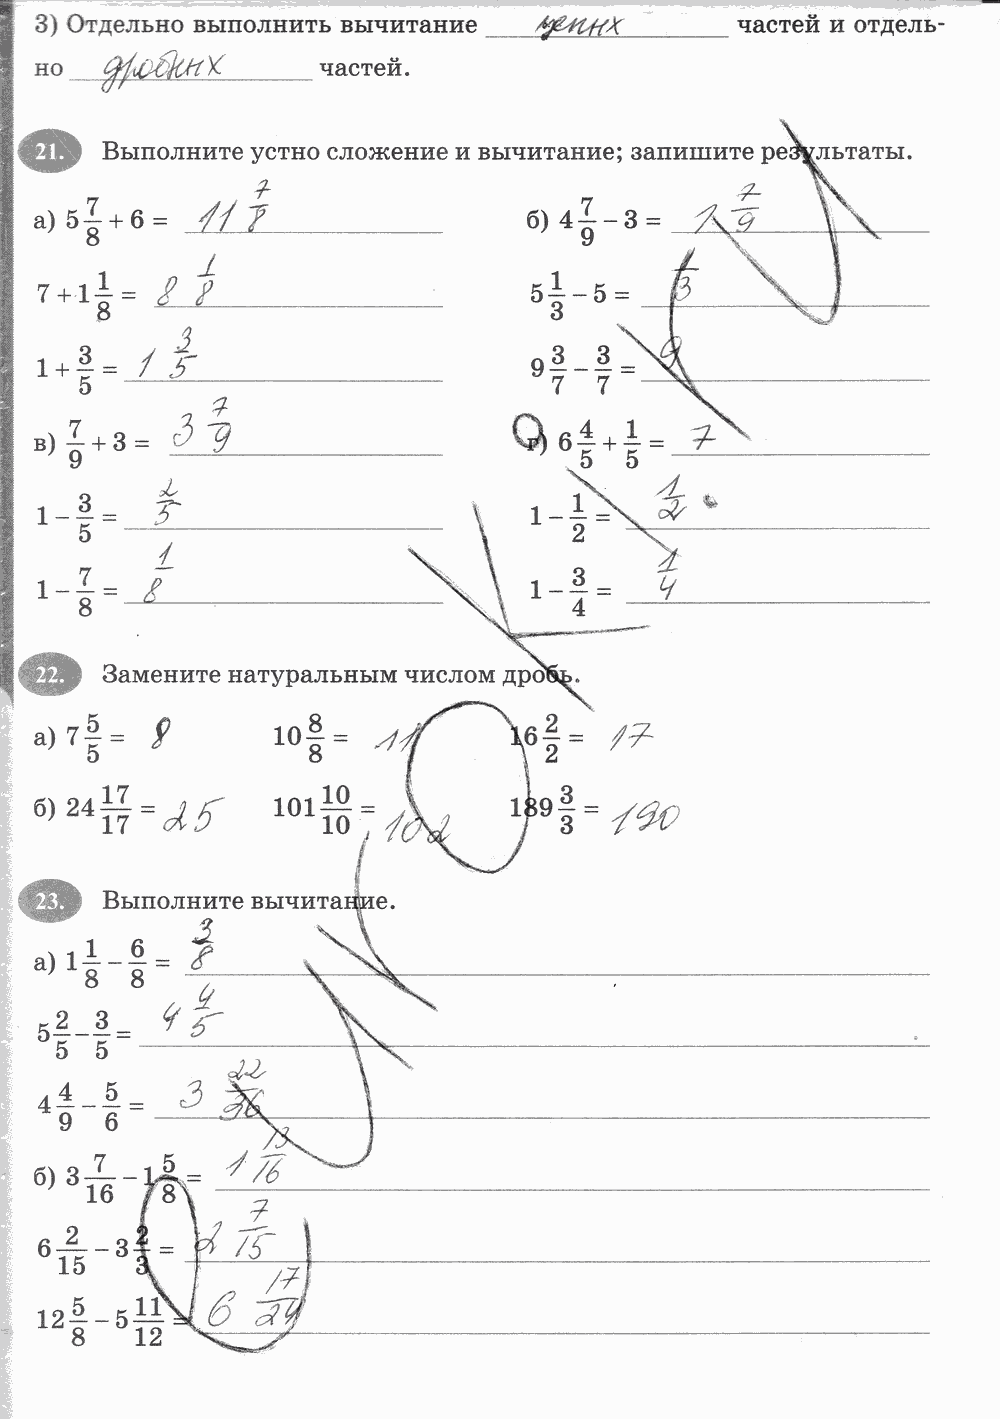 3) Отдельно выполнить вычитание целых частей и отдель-
но дробных частей.
21. Выполните устно сложение и вычитание; запишите результаты.
а) 5 7/8 + 6 = 11 7/8 б) 4 7/9 − 3 = 1 7/9
7 + 1 1/8 = 8 1/8 5 1/3 − 5 = 1/3
1 + 3/5 = 1 3/5 9 3/7 − 3/7 = 9
в) 7/9 + 3 = 3 7/9 г) 6 4/5 + 1/5 = 7
1 − 3/5 = 2/5 1 − 1/2 = 1/2
1 − 7/8 = 1/8 1 − 3/4 = 1/4
22. Замените натуральным числом дробь.
а) 7 5/5 = 8 10 8/8 = 11 16 2/2 = 17
б) 24 17/17 = 25 101 10/10 = 102 189 3/3 = 190
23. Выполните вычитание.
а) 1 1/8 − 6/8 = 3/8
5 2/5 − 3/5 = 4 4/5
4 4/9 − 5/6 = 3 22/36
б) 3 7/16 − 1 5/8 = 1 13/16
6 2/15 − 3 2/3 = 2 7/15
12 5/8 − 5 11/12 = 6 17/24